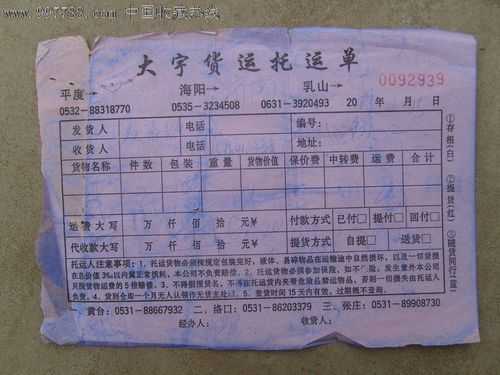 www.997788.com 中国收藏热线
大宇货运托运单
平度→ 海阳→ 乳山→ 0092939
0532-88318770 0535-3234508 0631-3920493 20 年 月 日
发货人 电话 编号:
收货人 电话 地址:
货物名称 件数 包装 重量 货物价值 保价费 中转费 运费 合计
运费大写 万 仟 佰 拾 元¥ 付款方式 已付□ 提付□ 回付□
代收款大写 万 仟 佰 拾 元¥ 提货方式 自提□ 送货□
①存根(白) ②提货(红) ③随货同行(蓝)
托运人注意事项:1、托运货物必须按规定包装完好,液体、易碎物品在运输途中自然损坏,以及一切货损
在总价值3‰以内属正常损耗,本公司不负责赔偿。2、托运货物必须参加保险,如不保险,发生意外本公司
只按货物运费的5倍赔偿。3、不得捏报货名,不准在托运货内夹带危险品禁运物品,否则一切损失由托运人
负责。4、货到全部一个月无人认领作无货主处理。5、查货时间15天内有效,过期概不查询。
一、黄台:0531-88667932 二、洛口:0531-86203379 三、张庄:0531-89908730
经办人: 收货人: